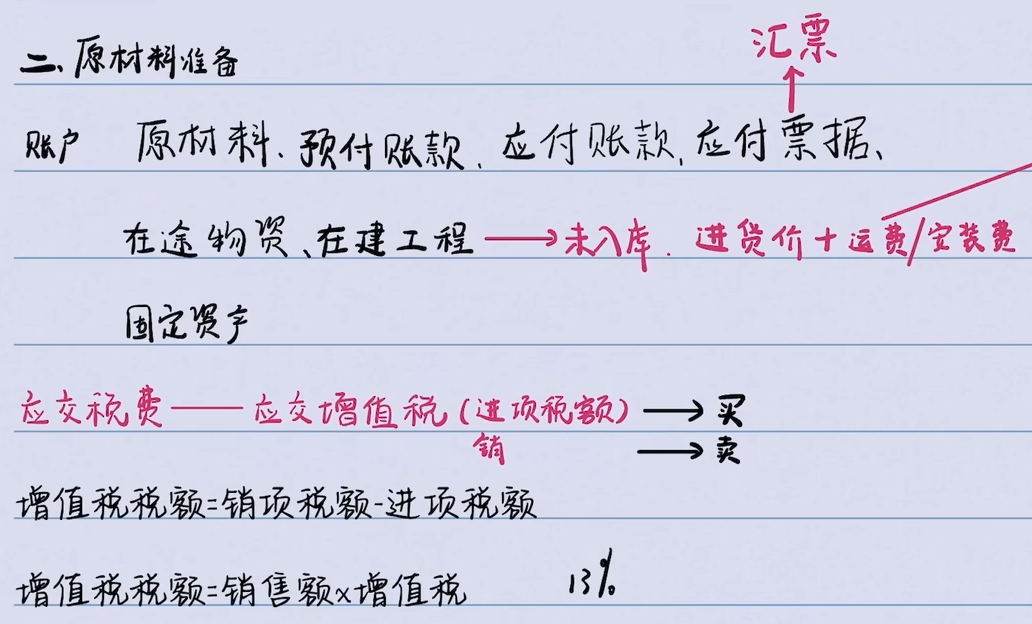 汇票
↑
二、原材料准备
账户 原材料、预付账款、应付账款、应付票据、
在途物资、在建工程 → 未入库. 进货价+运费/安装费
固定资产
应交税费——应交增值税(进项税额) → 买
销 → 卖
增值税税额=销项税额-进项税额
增值税税额=销售额×增值税 13%